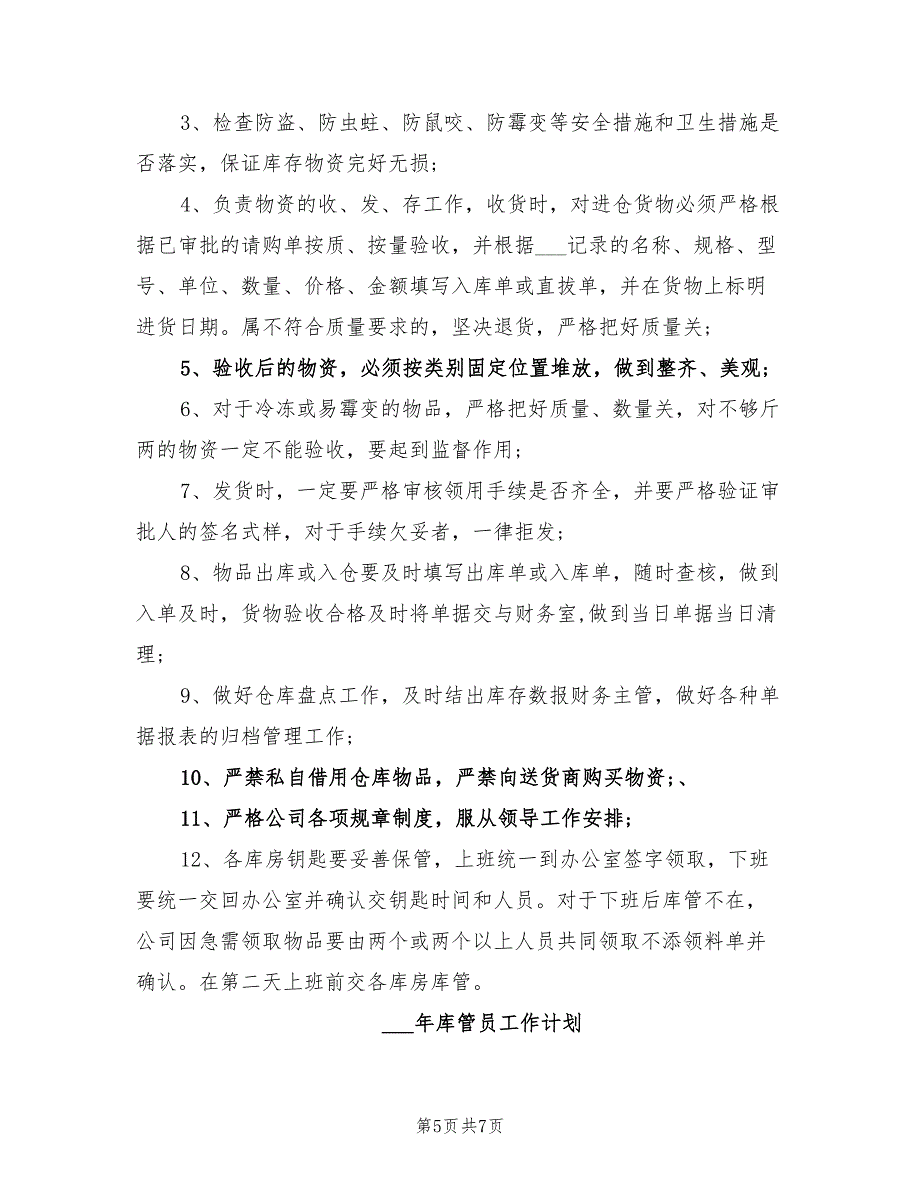 3、检查防盗、防虫蛀、防鼠咬、防霉变等安全措施和卫生措施是
否落实，保证库存物资完好无损;
4、负责物资的收、发、存工作，收货时，对进仓货物必须严格根
据已审批的请购单按质、按量验收，并根据___记录的名称、规格、型
号、单位、数量、价格、金额填写入库单或直拔单，并在货物上标明
进货日期。属不符合质量要求的，坚决退货，严格把好质量关;
5、验收后的物资，必须按类别固定位置堆放，做到整齐、美观;
6、对于冷冻或易霉变的物品，严格把好质量、数量关，对不够斤
两的物资一定不能验收，要起到监督作用;
7、发货时，一定要严格审核领用手续是否齐全，并要严格验证审
批人的签名式样，对于手续欠妥者，一律拒发;
8、物品出库或入仓要及时填写出库单或入库单，随时查核，做到
入单及时，货物验收合格及时将单据交与财务室,做到当日单据当日清
理;
9、做好仓库盘点工作，及时结出库存数报财务主管，做好各种单
据报表的归档管理工作;
10、严禁私自借用仓库物品，严禁向送货商购买物资;、
11、严格公司各项规章制度，服从领导工作安排;
12、各库房钥匙要妥善保管，上班统一到办公室签字领取，下班
要统一交回办公室并确认交钥匙时间和人员。对于下班后库管不在，
公司因急需领取物品要由两个或两个以上人员共同领取不添领料单并
确认。在第二天上班前交各库房库管。
___年库管员工作计划
第5页共7页